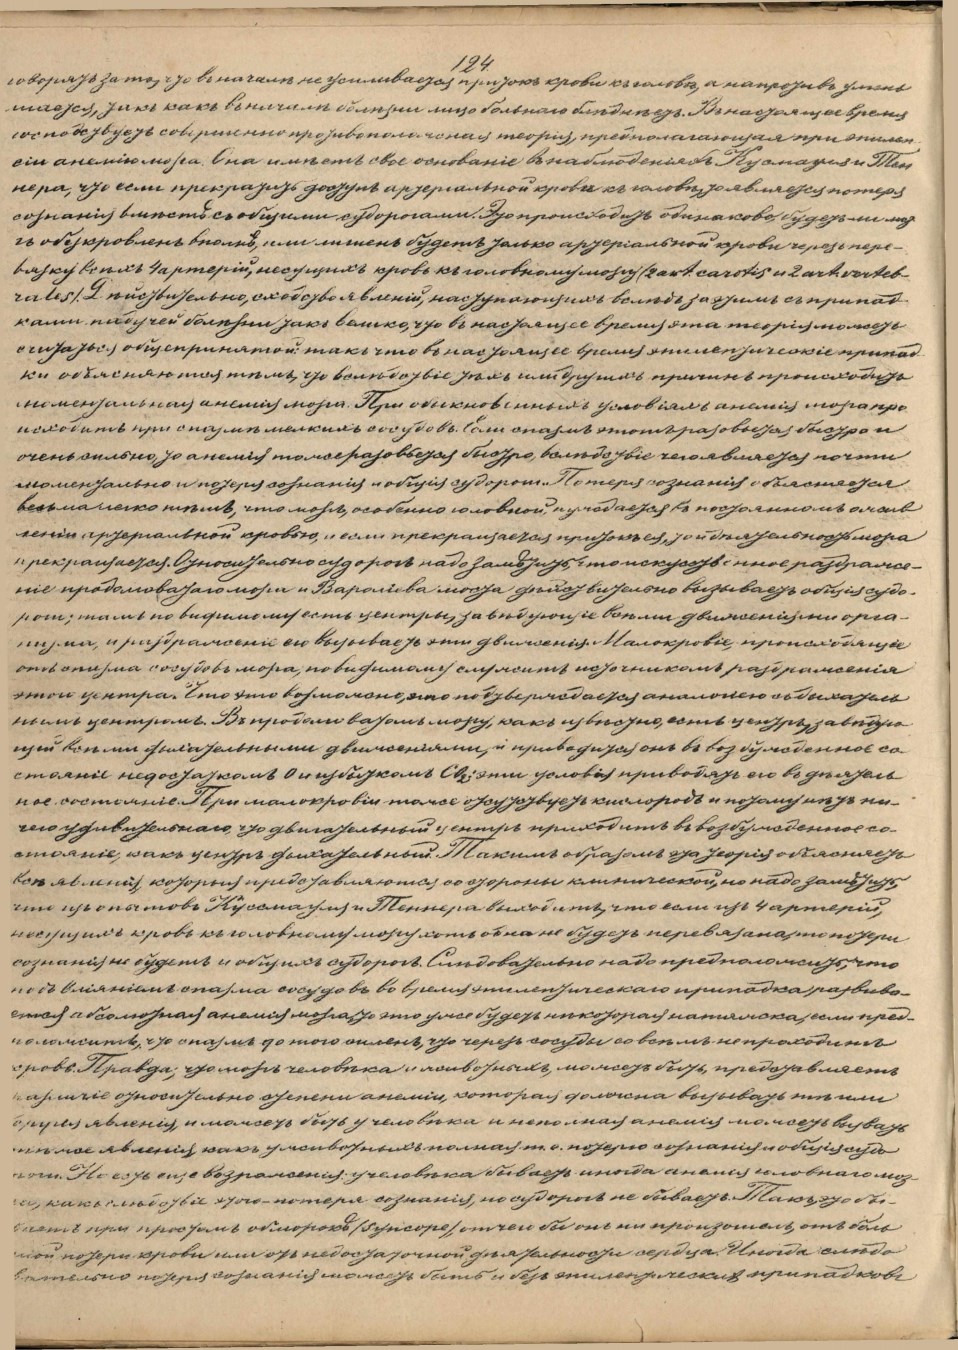 124.
говорятъ за то, что въ началѣ не усиливается притокъ крови къ головѣ, а напротивъ умень
шается, такъ какъ въ началѣ болѣзни лицо больнаго блѣднѣетъ. Въ настоящее время
господствуетъ совершенно противоположная теорія, предполагающая при эпилеп
сіи анемію мозга. Она имѣетъ свое основаніе въ наблюденіяхъ Кусмауля и Тен
нера, что если прекратить доступъ артеріальной крови къ головѣ, то является потеря
сознанія вмѣстѣ съ общими судорогами. Это происходитъ одинаково, будетъ ли моз
гъ обезкровленъ вполнѣ, или лишенъ будетъ только артеріальной крови через пере-
вязку всѣхъ 4 артерій, несущихъ кровь къ головному мозгу (2 art. carotis и 2 art. verteb-
rales). Дѣйствительно, сходство явленій, наступающихъ вслѣдъ за этимъ съ припад-
ками падучей болѣзни такъ велико, что въ настоящее время эта теорія можетъ
считаться общепринятой: такъ что въ настоящее время эпилептическіе припад-
ки объясняются тѣмъ, что вслѣдствіе тѣхъ или другихъ причинъ происходитъ
моментальная анемія мозга. При обыкновенныхъ условіяхъ анемія мозга про
исходитъ при спазмѣ мелкихъ сосудовъ. Если спазмъ этотъ разовьется быстро и
очень сильно, то анемія тоже разовьется быстро, вслѣдствіе чего является почти
моментально и потеря сознанія и общія судороги. Потеря сознанія объясняется
весьма легко тѣмъ, что мозгъ, особенно головной, нуждается въ постоянномъ ожив
леніи артеріальной кровью, и если прекращается притокъ ея, то и дѣятельность мозга
прекращается. Относительно судорогъ надо замѣтить, что искусственное раздраже-
ніе продолговатаго мозга и Вароліева моста дѣйствительно вызываетъ общія судо-
роги; тамъ по видимому есть центры, завѣдующіе всѣми движеніями орга-
низма, и раздраженіе его вызываетъ эти движенія. Малокровіе, происходящее
отъ спазма сосудовъ мозга, повидимому служитъ источникомъ раздраженія
этого центра. Что это возможно, это подтверждается аналогіею съ дыхатель
нымъ центромъ. Въ продолговатомъ мозгу, какъ извѣстно, есть центръ, завѣдую
щій всѣми дыхательными движеніями, и приводится онъ въ возбужденное со
стояніе недостаткомъ O и избыткомъ CO₂; эти условія приводятъ его въ дѣятель
ное состояніе. При малокровіи тоже отсутствуетъ кислородъ и потому нѣтъ ни-
чего удивительнаго, что двигательный центръ приходитъ въ возбужденное со-
стояніе, какъ центръ дыхательный. Такимъ образомъ эта теорія объясняетъ
всѣ явленія, которыя представляются со стороны клинической, но надо замѣтить,
что изъ опытовъ Куссмауля и Теннера выходитъ, что если изъ 4 артерій,
несущихъ кровь къ головному мозгу хоть одна не будетъ перевязана, то потери
сознанія не будетъ и общихъ судорогъ. Слѣдовательно надо предположить, что
подъ вліяніемъ спазма сосудовъ во время эпилептическаго припадка, развива-
ется абсолютная анемія мозга, но это уже будетъ нѣкоторая натяжка, если пред-
положить, что спазмъ до того силенъ, что черезъ сосуды совсѣмъ не проходитъ
кровь. Правда, что мозгъ человѣка и животныхъ, можетъ быть, представляетъ
различіе относительно степени анеміи, которая должна вызывать тѣ или
другія явленія, и можетъ быть у человѣка и неполная анемія можетъ вызвать
тѣ же явленія какъ у животныхъ полная т. е. потерю сознанія и общія судо
роги. Но есть еще возраженія: у человѣка бываетъ иногда анемія головнаго моз-
га, какъ слѣдствіе этого - потеря сознанія, но судорогъ не бываетъ. Такъ это бы-
ваетъ при простомъ обморокѣ (Syncope), отчего бы онъ ни произошелъ, отъ боль
шой потери крови или отъ недостаточной дѣятельности сердца. Иногда слѣдо
вательно потеря сознанія можетъ быть и безъ эпилептическихъ припадковъ